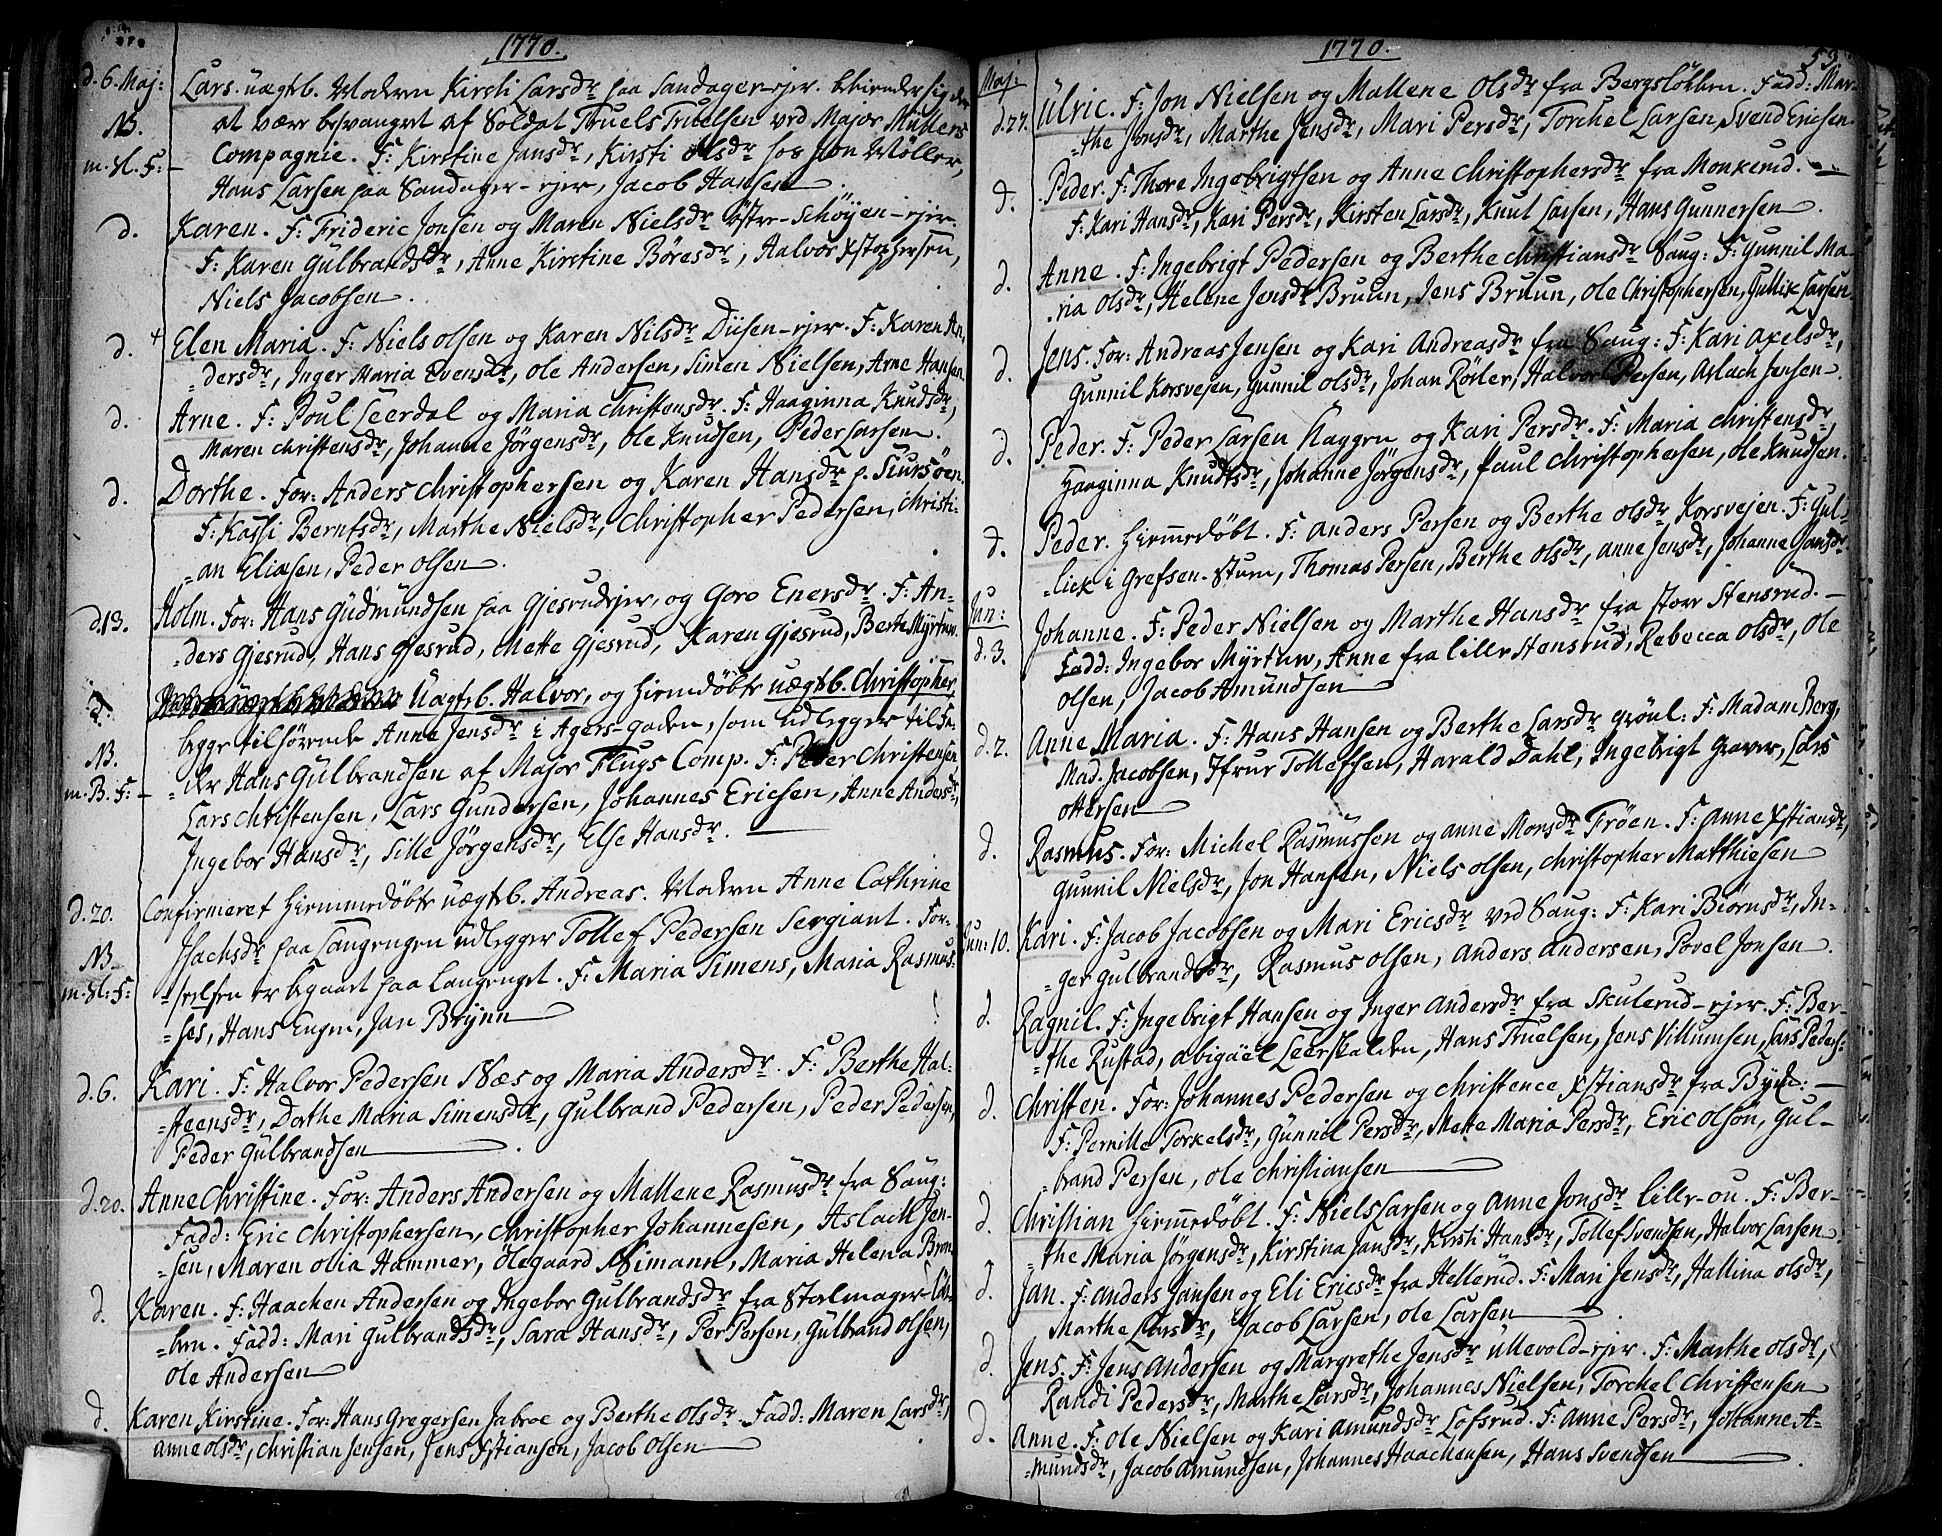 1770.
d. 6. Maj: Lars. uægtb. Moderen Kirsti Larsdr paa Sandager-ejer. bekiender sig
NB. at være besvangret af Soldat Truels Truelsen ved Major Müllers
m. Sl. F:- Compagnie. F: Kirstine Jansdr, Kirsti Olsdr hos Jon Møller,
Hans Larsen paa Sandager-ejer, Jacob Hansen.
d. Karen. F: Frideric Jonsen og Maren Nielsdr östre-Schöyen-ejer.
F: Karen Gulbrandsdr, Anne Kirstine Böresdr, Halvor Xstophersen,
Niels Jacobsen.
d. Elen Maria. F: Niels Olsen og Karen Nilsdr Diisen-ejer. F: Karen An-
-dersdr, Inger Maria Evensdr, Ole Andersen, Simen Nielsen, Arne Hansen.
d. Arne. F: Poul Leerdal og Maria Christensdr. F: Haaginna Knudsdr,
Maren Christensdr, Johanne Jörgensdr, Ole Knudsen, Peder Larsen.
d. Dorthe. For: Anders Christophersen og Karen Hansdr p. Siursöen.
F: Kassi Berntsdr, Marthe Nielsdr, Christopher Pedersen, Christi-
-an Eliasen, Peder Olsen.
d. 13. Holm. For: Hans Gudmundsen paa Gjesrudejer, og Goro Enersdr. F: An-
-ders Gjesrud, Hans Gjesrud, Mette Gjesrud, Karen Gjesrud, Berte Myrtuw.
d. Uægtb. Halvor, og hiemdöbte uægtb. Christopher,
NB. begge tilhörende Anne Jensdr i Agers-gaden, som udlegger til Fa-
m. B. F:- -der Hans Gulbrandsen af Major Flugs Comp. F: Peder Christensen
Lars Christensen, Lars Gundersen, Johannes Ericsen, Anne Andersdr,
Ingebor Hansdr, Sille Jörgensdr, Else Hansdr.
d. 20. Confirmeret hiemmedöbte uægtb. Andreas. Moderen Anne Cathrine
NB. Isachsdr paa Langengen udlegger Tollef Pedersen Sergiant. For-
m. Sl: F: -seelsen er begaaet paa Langenget. F: Maria Simens, Maria Rasmus-
-ses, Hans Engen, Jan Brynn
d. 6. Kari. F: Halvor Pedersen Næs og Maria Andersdr. F: Berthe Hal-
-steensdr, Dorthe Maria Simensdr, Gulbrand Pedersen, Peder Pedersen,
Peder Gulbrandsen.
d. 20. Anne Christine. For: Anders Andersen og Mallene Rasmusdr fra Saug:
Fadd: Eric Christophersen, Christopher Johannesen, Aslach Jen-
-sen, Maren Olia Hammer, Ölegaard Nimann, Maria Helena Brun
d. Karen. F: Haachen Andersen og Ingebor Gulbrandsdr fra Stalmager-Lök-
-ken. Fadd: Mari Gulbrandsdr, Sara Hansdr, Per Persen, Gulbrand Olsen,
Ole Andersen
d. Karen Kirstine. For: Hans Gregersen Jabroe og Berthe Olsdr. Fadd: Maren Larsdr,
Anne Olsdr, Christian Jensen, Jens Xstiansen, Jacob Olsen
1770. 53
Maj:
d. 27. Ulric. F: Jon Nielsen og Mallene Olsdr fra Bergslökken. Fadd: Mar-
-the Jonsdr, Marthe Jensdr, Mari Persdr, Torchel Larsen, Svend Ericsen.
d. Peder. F: Thore Ingebrigtsen og Anne Christophersdr fra Monkerud.
F: Kari Hansdr, Kari Persdr, Kirsten Larsdr, Knut Larsen, Hans Gunnersen.
d. Anne. F: Ingebrigt Pedersen og Berthe Christiansdr Saug: F: Gunnil Ma-
-ria Olsdr, Helene Jensdr Bruun, Jens Bruun, Ole Christophersen, Gullik Larsen.
d. Jens. For: Andreas Jensen og Kari Andreasdr fra Saug: F: Kari Axelsdr,
Gunnil Korsvejen, Gunnil Olsdr, Johan Röiler, Halvor Persen, Aslach Jensen.
d. Peder. F: Peder Larsen Haygen og Kari Persdr. F: Maria Christensdr,
Haaginna Knudtsdr, Johanne Jörgensdr, Paul Christophersen, Ole Knudsen.
d. Peder. Hiemmedöbt. F: Anders Persen og Berthe Olsdr Korsvejen. F: Gul-
-lick i Grefsen-stuen, Thomas Persen, Berthe Olsdr, Anne Jensdr, Johanne Jansdr.
Jun:
d. 3. Johanne. F: Peder Nielsen og Marthe Hansdr fra store Stensrud.-
Fadd: Ingebor Myrtuw, Anne fra lille Stensrud, Rebecca Olsdr, Ole
Olsen, Jacob Amundsen
d. 2. Anne Maria. F: Hans Hansen og Berthe Larsdr Grönl: F: Madam Berg,
Mad. Jacobsen, Jfrur Tollefsen, Harald Dahl, Ingebrigt Graver, Lars
Ottersen
d. Rasmus. For: Michel Rasmussen og Anne Monsdr Tröen. F: Anne Xstiansdr,
Gunnil Nielsdr, Jon Hansen, Niels Olsen, Christopher Matthiesen
Jun: 10. Kari. F: Jacob Jacobsen og Mari Ericsdr ved Saug: F: Kari Biörnsdr, In-
-ger Gulbrandsdr, Rasmus Olsen, Anders Andersen, Povel Jonsen.
d. Ragnil. F: Ingebrigt Hansen og Inger Andersdr fra Skulerud-ejer. F: Ber-
-the Rustad, Abigaël Leerskalden, Hans Truelsen, Jens Villumsen, Lars Peders:
d. Christen. For: Johannes Pedersen og Christence Xstiansdr fra Bynd:-
F: Pernille Torkelsdr, Gunnil Persdr, Mette Maria Persdr, Eric Olson, Gul-
-brand Persen, Ole Christiansen
d. Christian Hiemmedöbt. F: Niels Larsen og Anne Jonsdr lille-ou. F: Ber-
-the Maria Jörgensdr, Kirstina Jansdr, Kirsti Hansdr, Tollef Svendsen, Halvor Larsen
d. Jan. F: Anders Jansen og Eli Ericsdr fra Hellerud. F: Mari Jensdr, Hallina Olsdr,
Marthe Larsdr, Jacob Larsen, Ole Larsen
d. Jens. F: Jens Andersen og Margrethe Jensdr Ullevold-ejer. F: Marthe Olsdr,
Randi Pedersdr, Marthe Larsdr, Johannes Nielsen, Torchel Christensen
d. Anne. F: Ole Nielsen og Kari Amundsdr Lofsrud. F: Anne Persdr, Johanne A-
-mundsdr, Jacob Amundsen, Johannes Haachensen, Hans Svendsen.